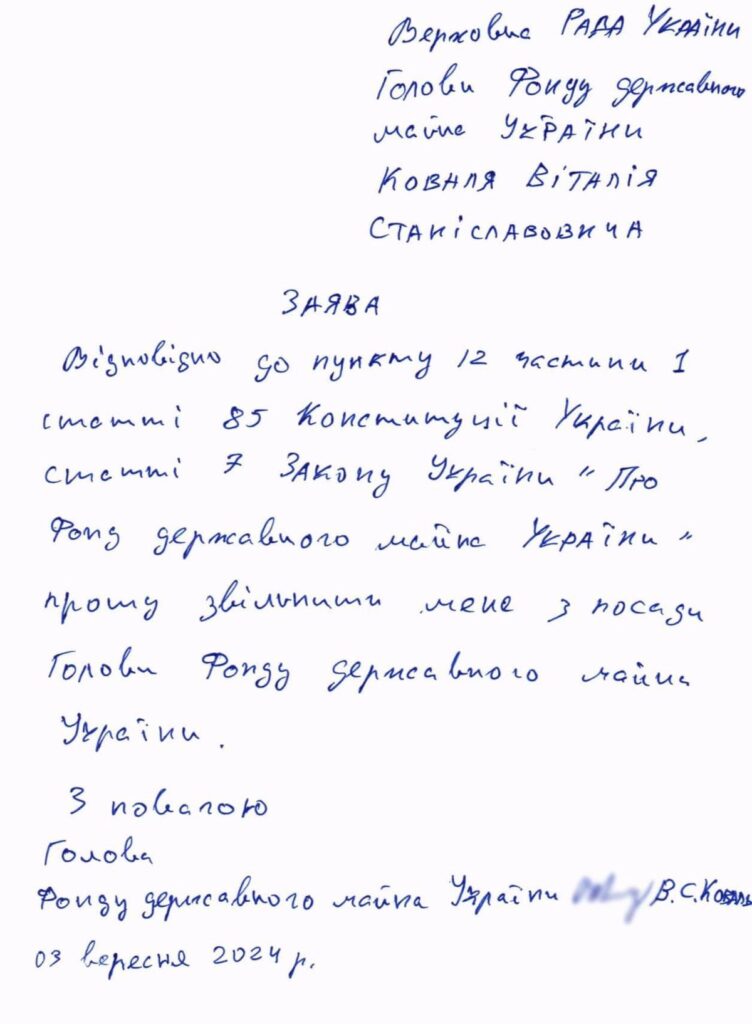 Верховна РАДА УКРАЇНИ
Голови Фонду державного
майна УКРАЇНИ
КОВАЛЯ ВІТАЛІЯ
СТАНІСЛАВОВИЧА
ЗАЯВА
Відповідно до пункту 12 частини 1
статті 85 Конституції України,
статті 7 Закону України "Про
Фонд державного майна УКРАЇНИ"
прошу звільнити мене з посади
Голови Фонду державного майна
України.
З повагою
Голова
Фонду державного майна України В.С.Коваль
03 вересня 2024 р.